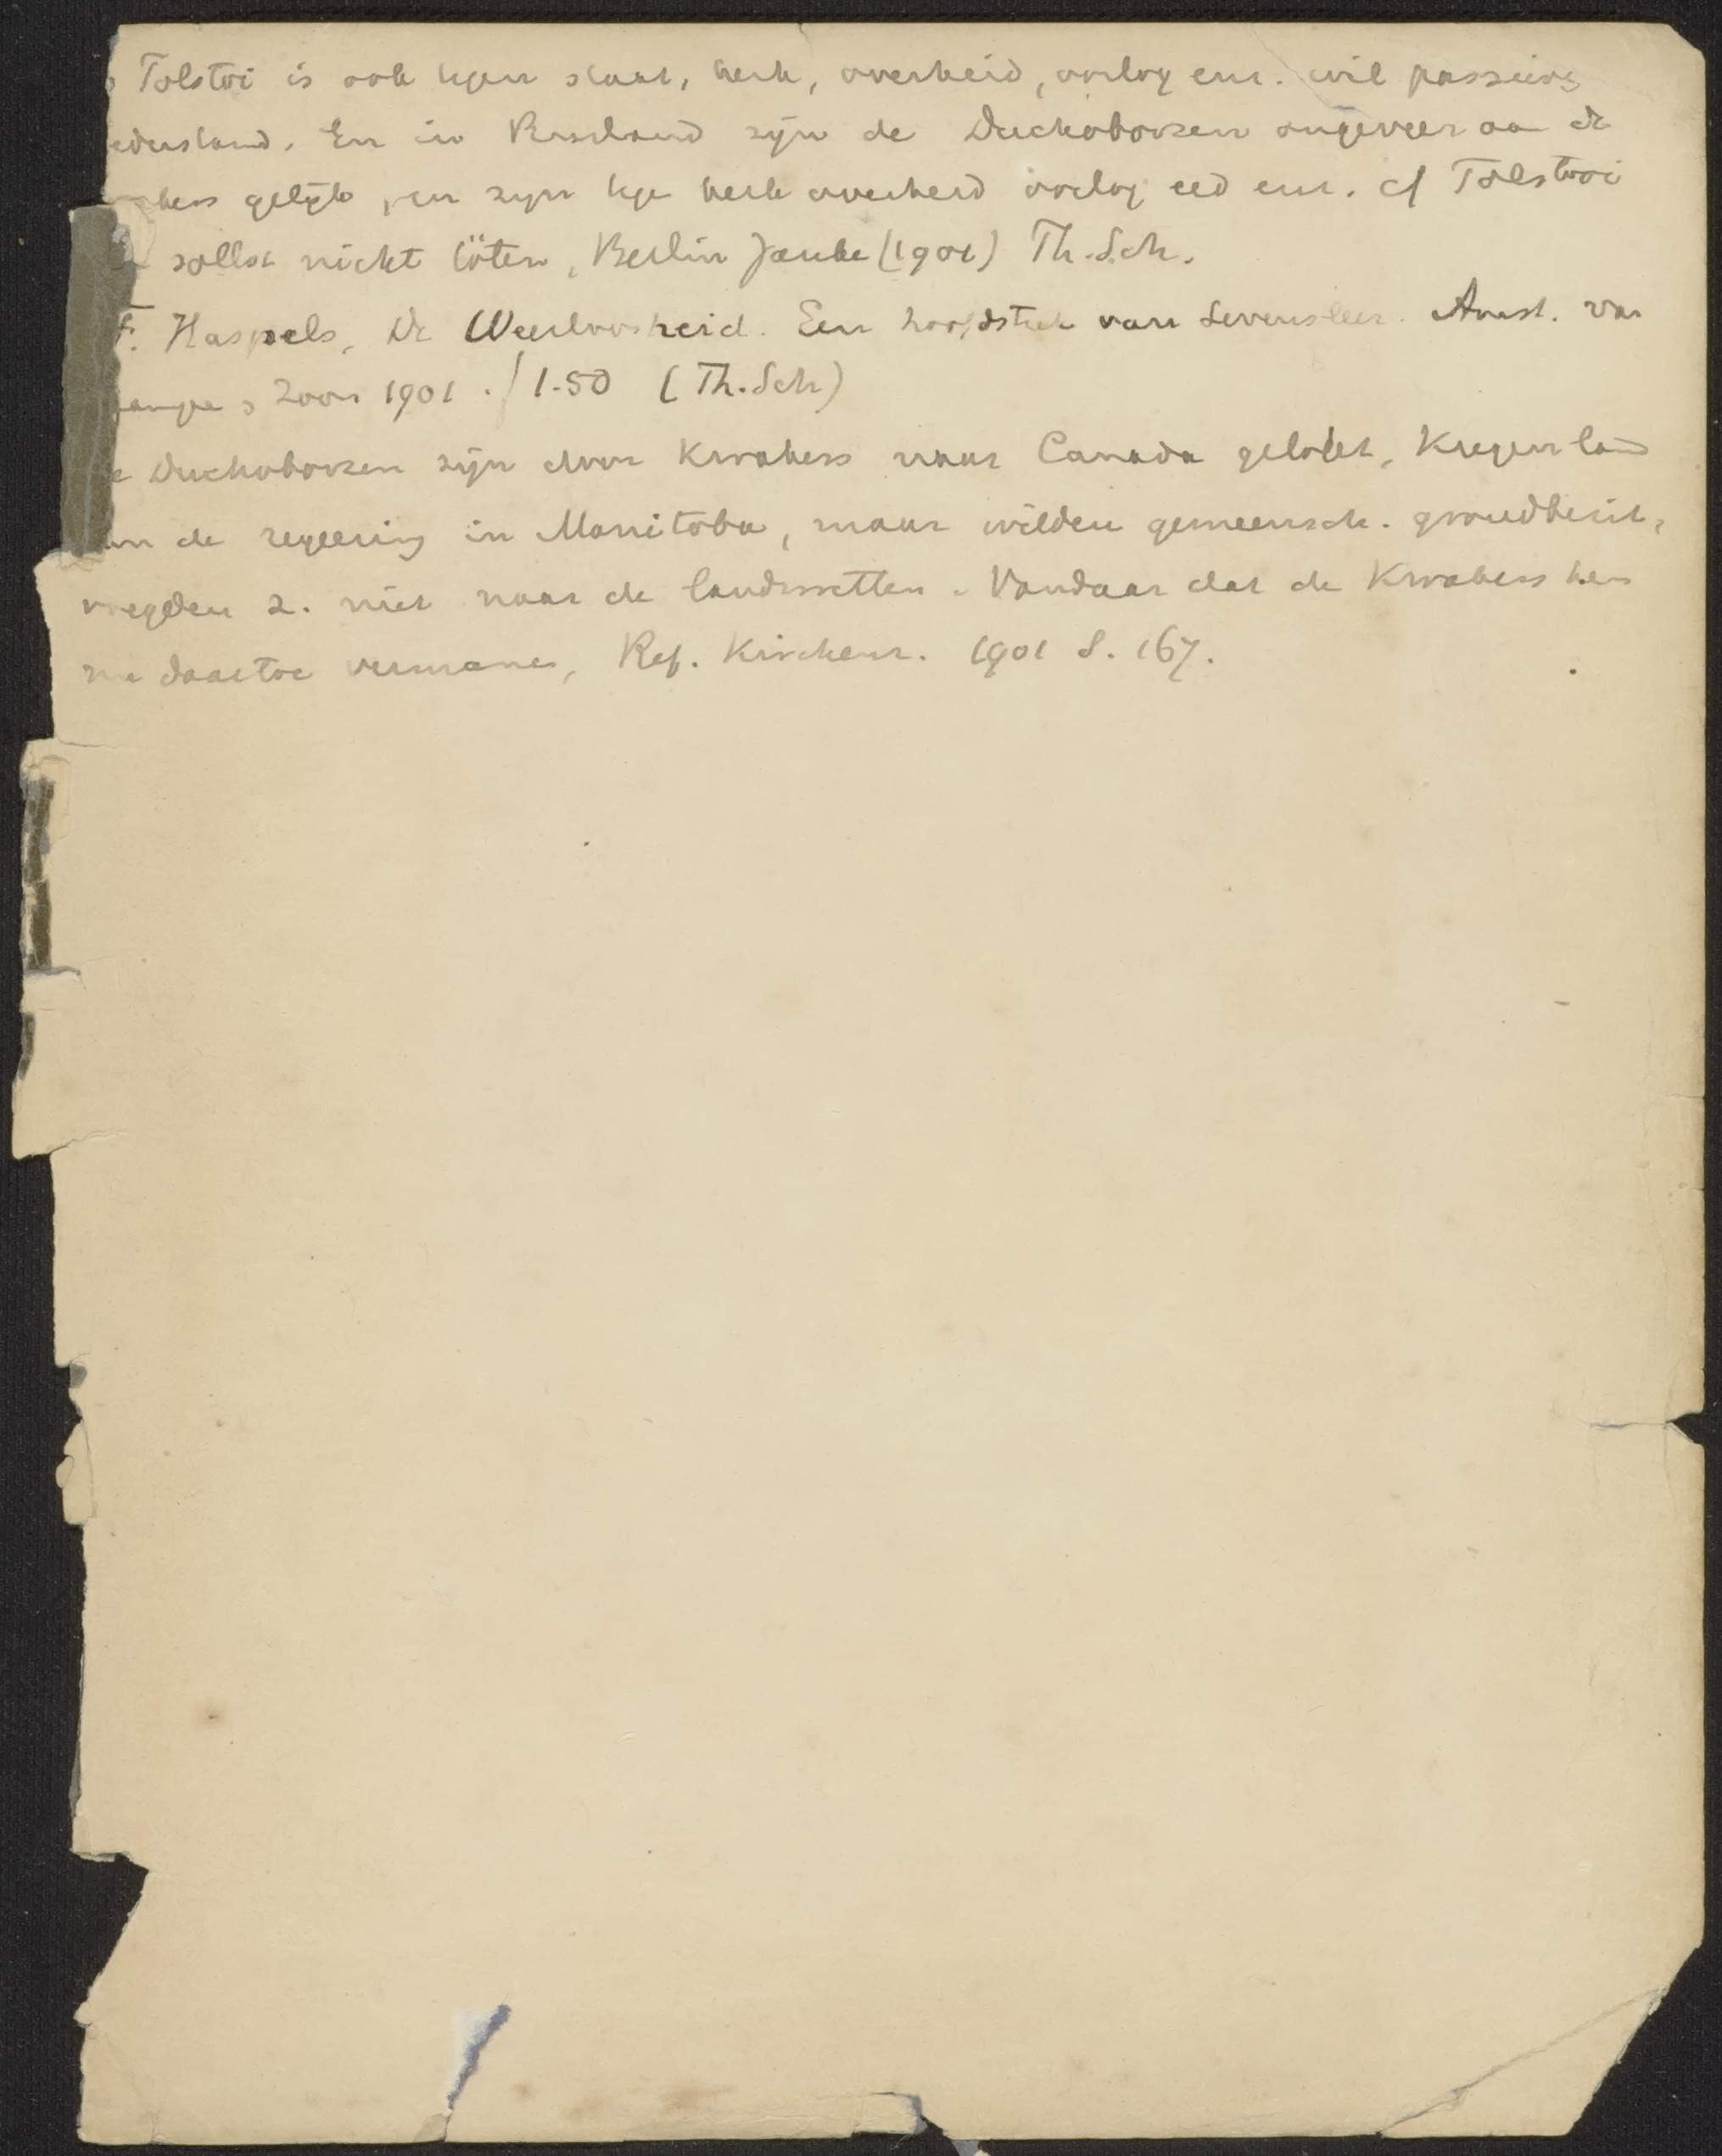 Tolstoi is ook tegen staat, kerk, overheid, oorlog enz. wil passieve
ederstand. En in Rusland zijn de Duchoborzen ongeveer aan de
kers gelijk, en zijn tgn kerk overheid oorlog eed enz. cf Tolstoi
sollst nicht töten, Berlin Janke (1901) Th. Sch.
F. Haspels, De Weerloosheid. Een hoofdstuk van Levensleer. Amst. van
ampe & Zoon 1901. f 1.50 (Th. Sch)
e Duchoborzen zijn door Kwakers naar Canada gelokt, kregen land
an de regeering in Manitoba, maar wilden gemeensch. grondbezit,
voegden z. niet naar de landswetten. Vandaar dat de Kwakers hen
nu daartoe vermanen, Ref. Kirchenz. 1901 S. 167.